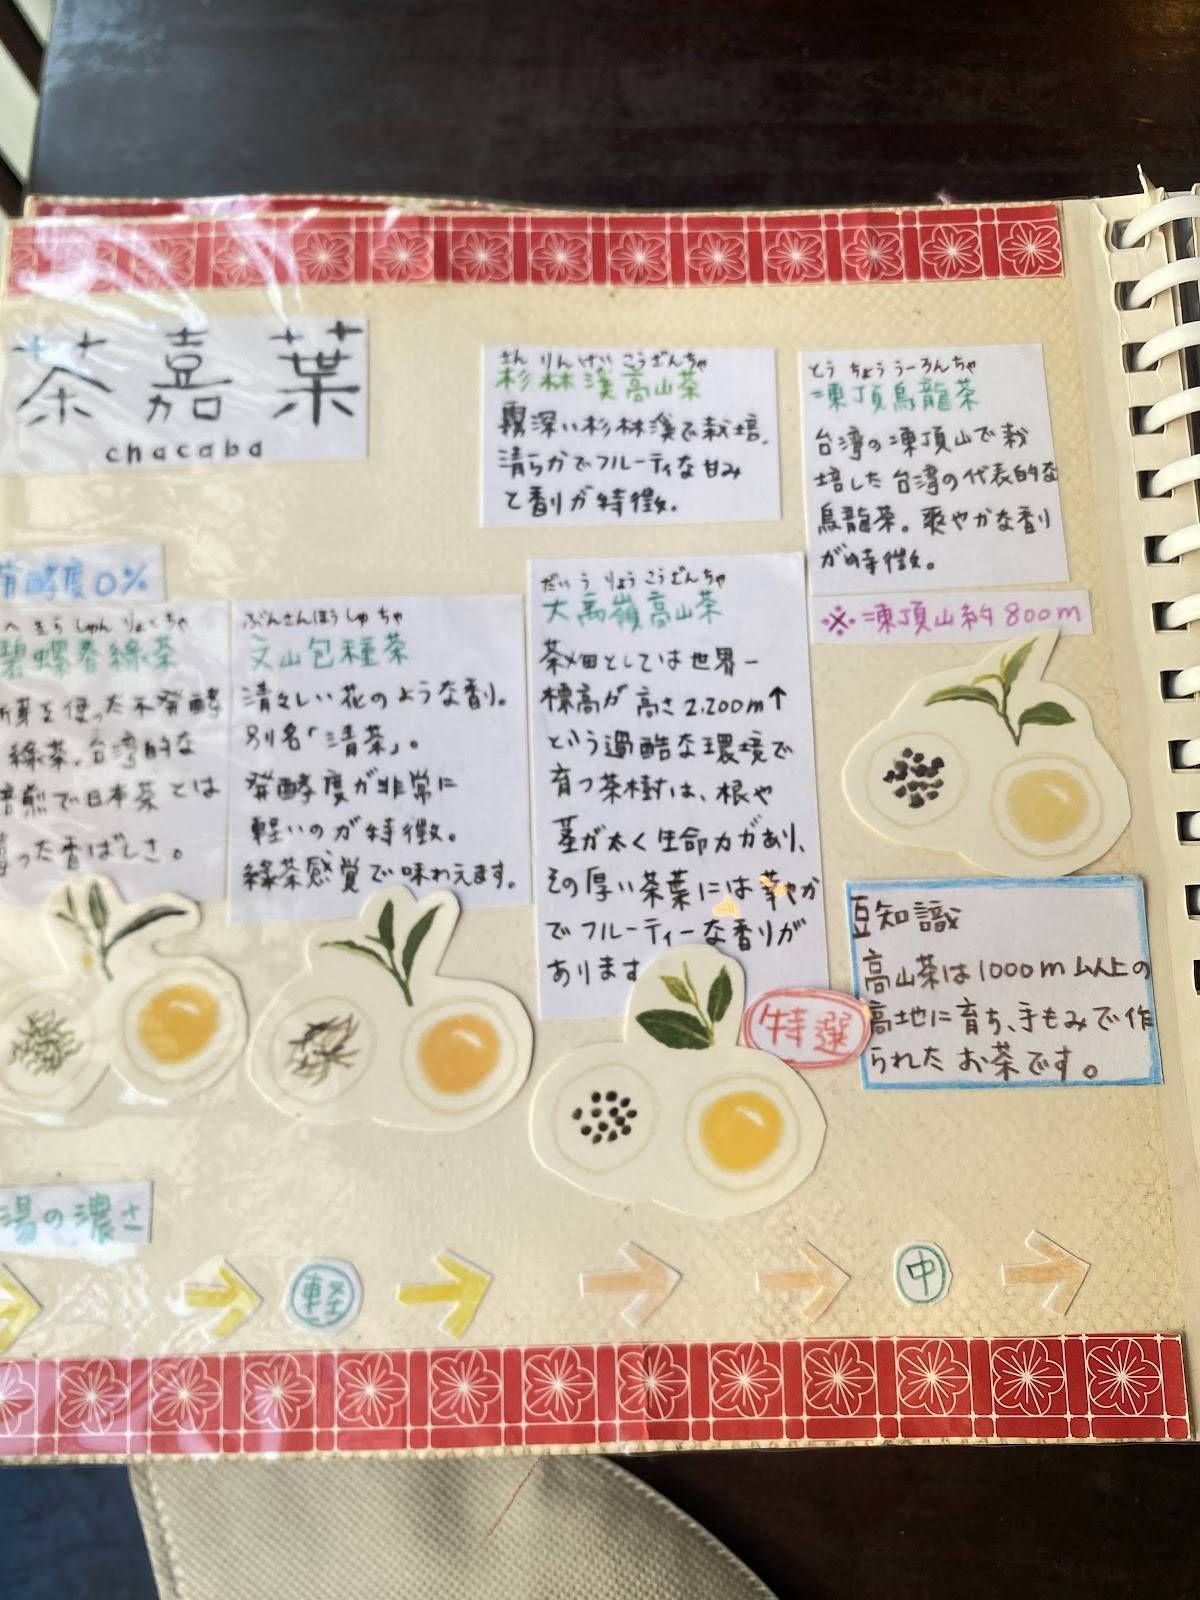 茶嘉葉
chacaba
発酵度0%
へきら しゅん りょくちゃ
碧螺春緑茶
新芽を使った不発酵
緑茶。台湾的な
焙煎で日本茶とは
違った香ばしさ。
ぶんさんほうしゅちゃ
文山包種茶
清々しい花のような香り。
別名「清茶」。
発酵度が非常に
軽いのが特徴。
緑茶感覚で味わえます。
さんりんけいこうざんちゃ
杉林溪高山茶
霧深い杉林溪で栽培。
清らかでフルーティな甘み
と香りが特徴。
だいうりょうこうざんちゃ
大禹嶺高山茶
茶畑としては世界一
標高が高さ2,200m↑
という過酷な環境で
育つ茶樹は、根や
茎が太く生命力があり、
その厚い茶葉には華やか
でフルーティーな香りが
あります
特選
とうちょううーろんちゃ
凍頂烏龍茶
台湾の凍頂山で栽
培した台湾の代表的な
烏龍茶。爽やかな香り
が特徴。
※凍頂山約800m
豆知識
高山茶は1000m以上の
高地に育ち、手もみで作
られたお茶です。
湯の濃さ
軽
中